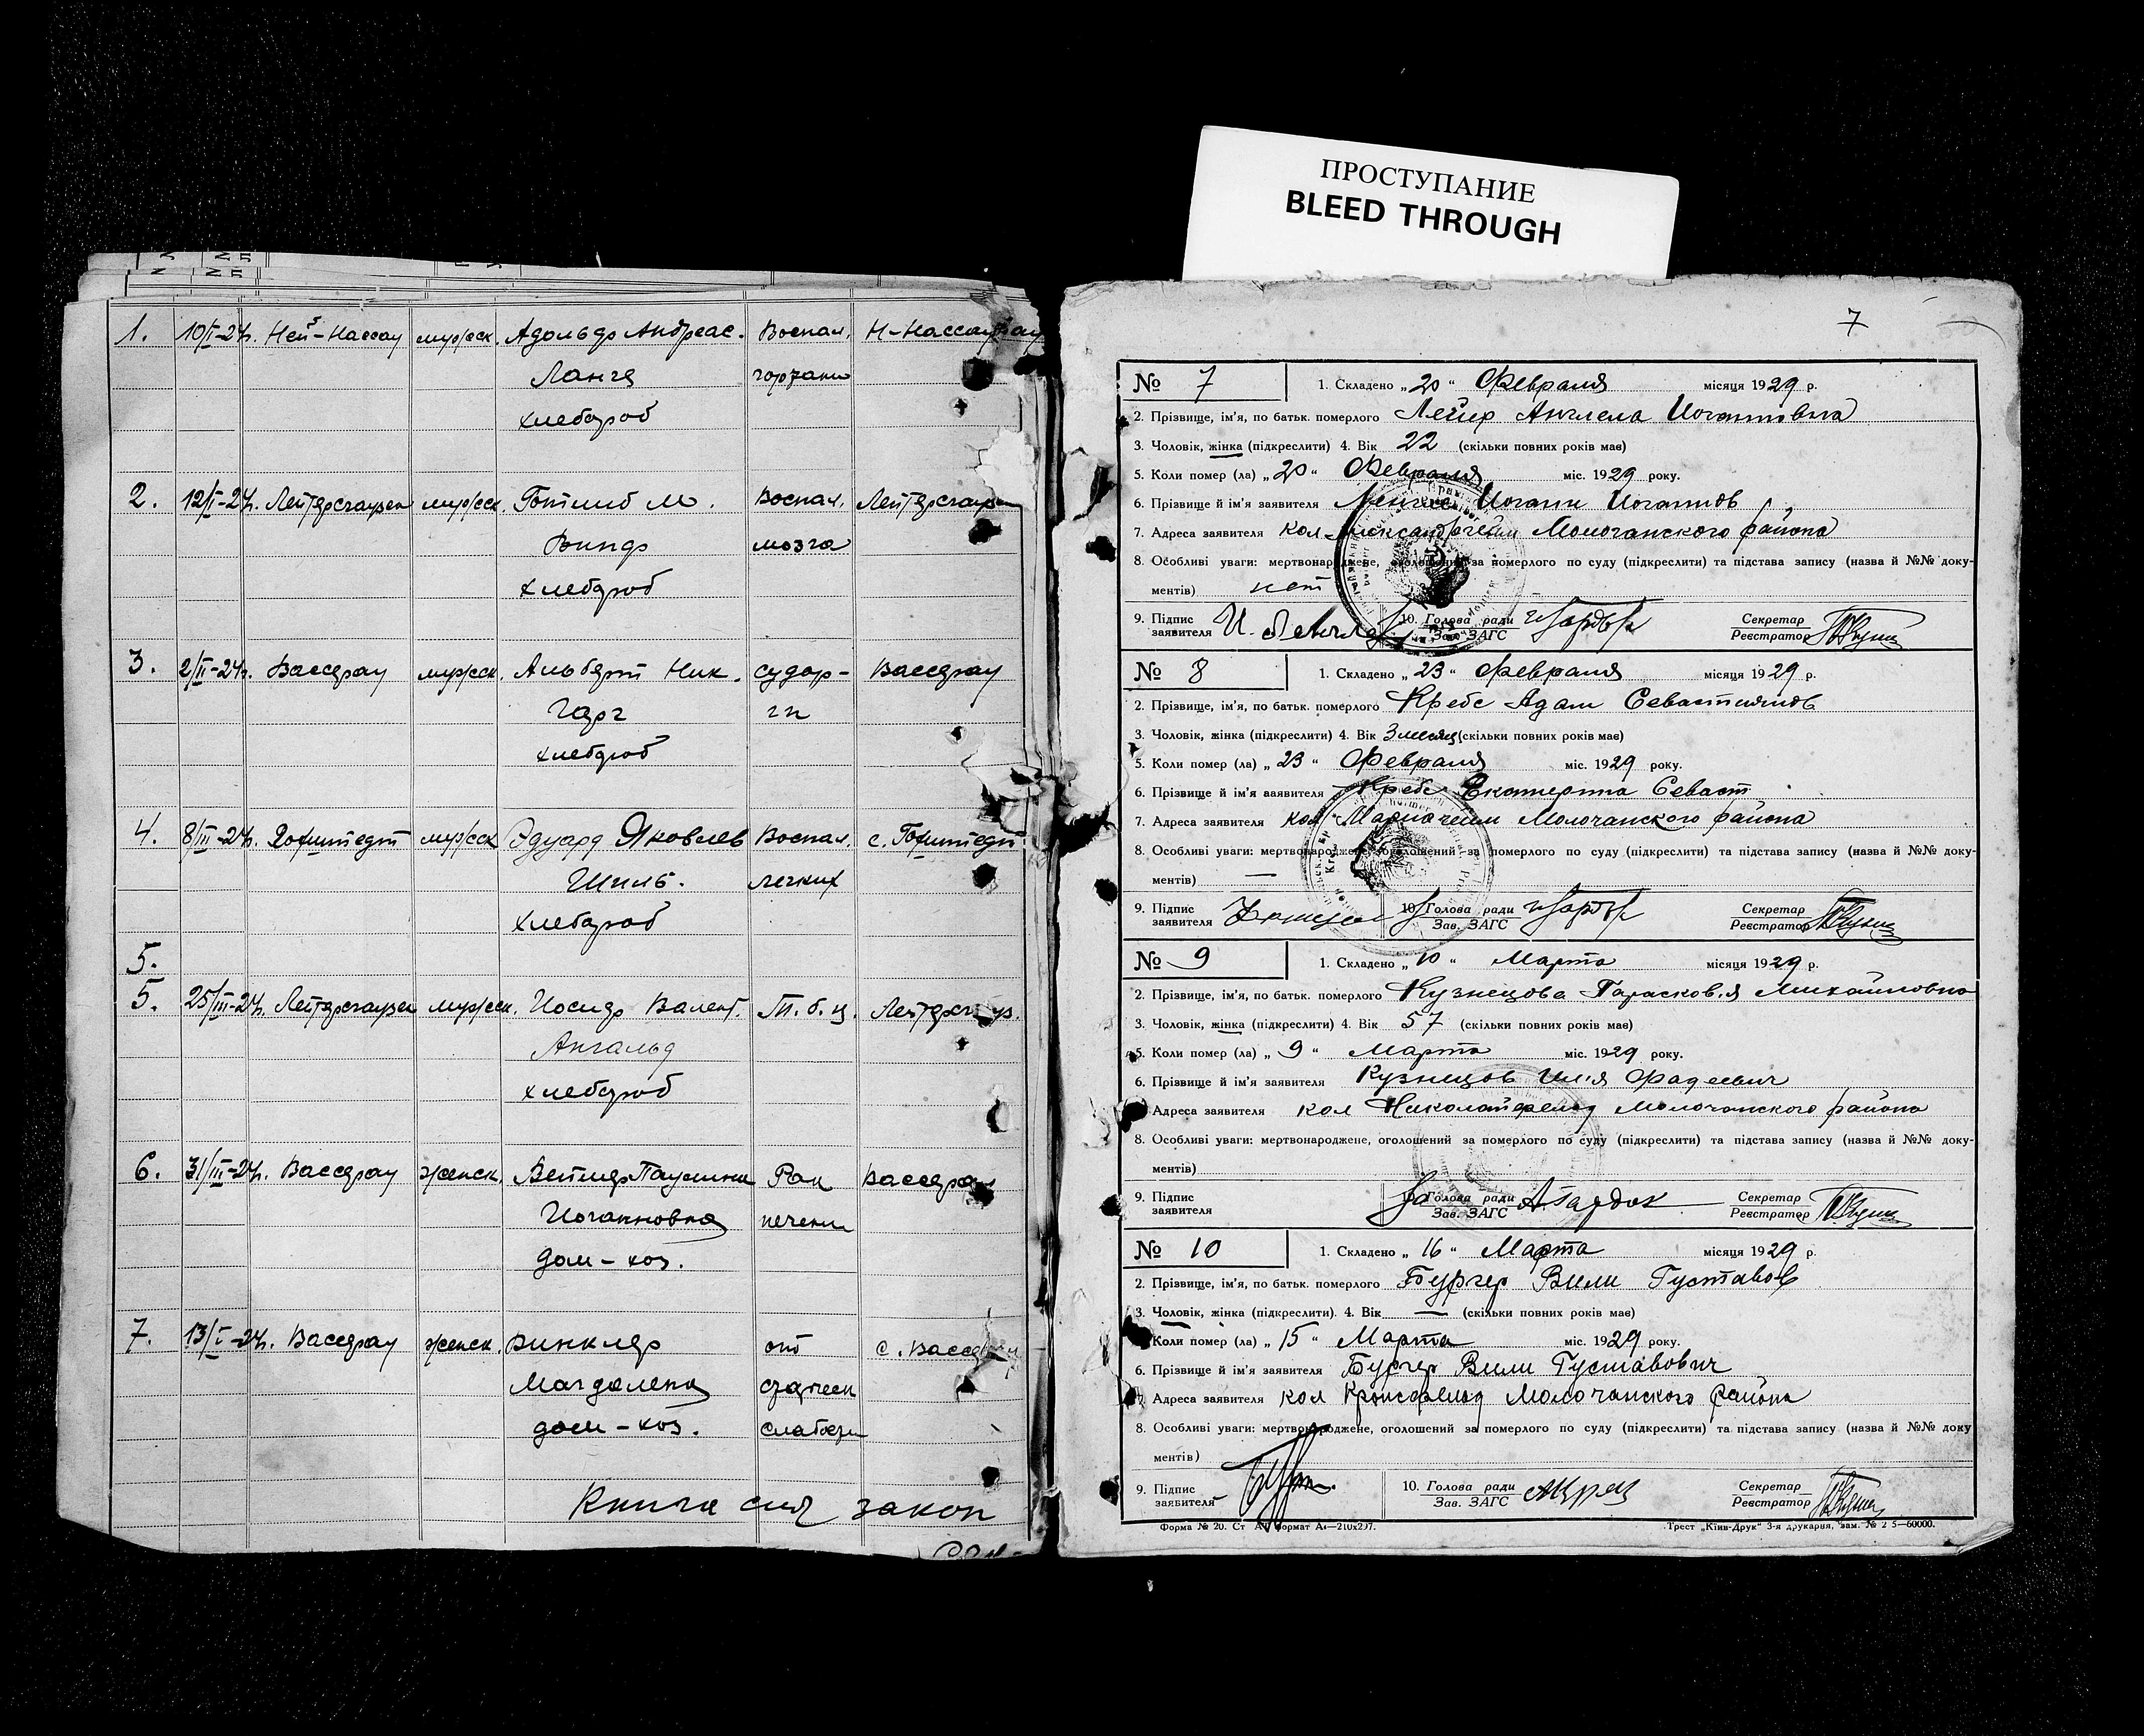 ПРОСТУПАНИЕ
BLEED THROUGH
1. 10/I-24г. Ней-Нассау мужск. Адольф Андреас. Воспал. Н-Нассау
Ланге гортани
хлебороб
2. 12/I-24г. Лейтерсгаузен мужск. Готлиб М. Воспал. Лейтерсгауз
мозга
хлебороб
3. 2/II-24г. Вассерау мужск. Альберт Ник. судор- Вассерау
Герг ги
хлебороб
4. 8/III-24г. Гохштедт мужск Эдуард Яковлев Воспал. с. Гохштедт
Шиль. легких
хлебороб
5.
5. 25/III-24г. Лейтерсгаузен мужск. Иосиф Валент. Т.б.ц. Лейтерсгауз.
Ангальд
хлебороб
6. 31/III-24г. Вассерау женск. Паулина Рак Вассерау
Иогановна печени
дом-хоз.
7. 13/I-24г. Вассерау женск. Винклер от с. Вассерау
Магдалена старческ
дом-хоз. слабости
Книга сия закон
7
№ 7 1. Складено „20“ Февраля місяця 1929 р.
2. Прізвище, ім'я, по батьк. померлого Ангела Иогановна
3. Чоловік, жінка (підкреслити) 4. Вік 22 (скільки повних років має)
5. Коли помер (ла) „20“ Февраля міс. 1929 року.
6. Прізвище й ім'я заявителя Иоган Иоганов
7. Адреса заявителя кол Александргейм Молочанского района
8. Особливі уваги: мертвонароджене, оголошений за померлого по суду (підкреслити) та підстава запису (назва й №№ доку-
ментів) нет
9. Підпис заявителя И. 10. Голова ради Зав. ЗАГС Секретар Реєстратор
№ 8 1. Складено „23“ Февраля місяця 1929 р.
2. Прізвище, ім'я, по батьк. померлого Кребс Адам Севастиянов
3. Чоловік, жінка (підкреслити) 4. Вік 3 месяц (скільки повних років має)
5. Коли помер (ла) „23“ Февраля міс. 1929 року.
6. Прізвище й ім'я заявителя Кребс Екатерина Севаст
7. Адреса заявителя кол Мариагейм Молочанского района
8. Особливі уваги: мертвонароджене, оголошений за померлого по суду (підкреслити) та підстава запису (назва й №№ доку-
ментів) —
9. Підпис заявителя 10. Голова ради Зав. ЗАГС Секретар Реєстратор
№ 9 1. Складено „10“ Марта місяця 1929 р.
2. Прізвище, ім'я, по батьк. померлого Кузнецова Парасковия Михайловна
3. Чоловік, жінка (підкреслити) 4. Вік 57 (скільки повних років має)
5. Коли помер (ла) „9“ Марта міс. 1929 року.
6. Прізвище й ім'я заявителя Кузнецов Илія Фадеевич
Адреса заявителя кол Николайфельд Молочанского района
8. Особливі уваги: мертвонароджене, оголошений за померлого по суду (підкреслити) та підстава запису (назва й №№ доку-
ментів)
9. Підпис заявителя Голова ради Зав. ЗАГС Секретар Реєстратор
№ 10 1. Складено „16“ Марта місяця 1929 р.
2. Прізвище, ім'я, по батьк. померлого Бургер Вили Густавов
3. Чоловік, жінка (підкреслити). 4. Вік — (скільки повних років має)
Коли помер (ла) „15“ Марта міс. 1929 року.
6. Прізвище й ім'я заявителя Бургер Вили Густавович
Адреса заявителя кол Кронсфельд Молочанского района
8. Особливі уваги: мертвонароджене, оголошений за померлого по суду (підкреслити) та підстава запису (назва й №№ доку
ментів)
9. Підпис заявителя 10. Голова ради Зав. ЗАГС Секретар Реєстратор
Форма № 20. Ст формат А4—210х297. Трест „Київ-Друк“ 3-я друкарня, зам. №